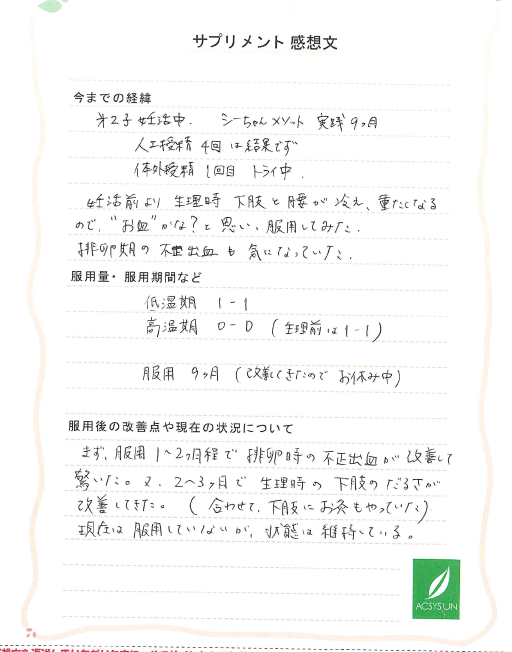 サプリメント 感想文
今までの経緯
第2子 妊活中. シーちゃんメソット 実践 9ヶ月
人工授精 4回 は結果でず
体外授精 1回目 トライ中.
妊活前より 生理時 下肢と腰が冷え、重たくなる
ので、"お血"かな？と思い、服用してみた.
排卵期の不正出血も気になっていた.
服用量・服用期間など
低温期 1-1
高温期 0-0 (生理前は1-1)
服用 9ヶ月 (改善してきたので お休み中)
服用後の改善点や現在の状況について
まず、服用1〜2ヶ月程で排卵時の不正出血が改善して
驚いた。又、2〜3ヶ月で生理時の下肢のだるさが
改善してきた。(合わせて、下肢にお灸もやっていた)
現在は服用していないが、状態は維持している。
ACSYSUN